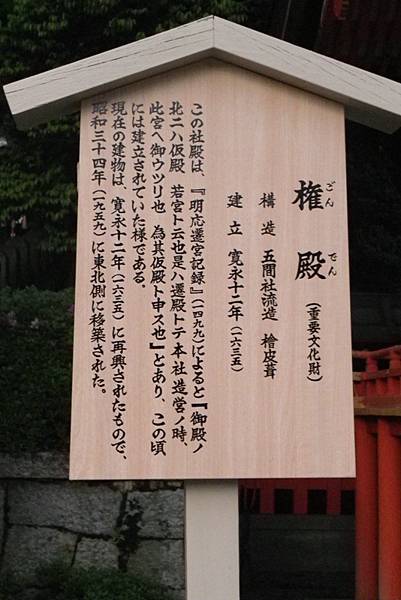 権殿
ごんでん
(重要文化財)
構造 五間社流造 檜皮葺
建立 寛永十二年(一六三五)
この社殿は、『明応遷宮記録』(一四九九)によると『御殿ノ
北ニハ仮殿 若宮ト云也是ハ遷殿トテ本社造営ノ時、
此宮ヘ御ウツリ也 為其仮殿ト申ス也』とあり、この頃
には建立されていた様である。
現在の建物は、寛永十二年(一六三五)に再興されたもので、
昭和三十四年(一九五九)に東北側に移築された。